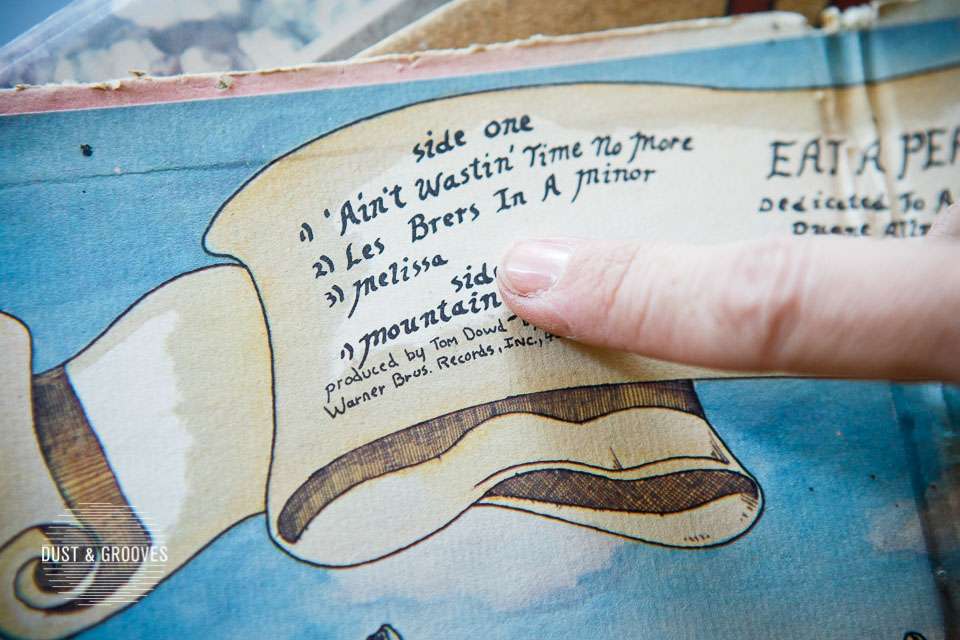 side one
1) 'Ain't Wastin' Time No More
2) Les Brers In A Minor
3) Melissa
side
1) Mountain
produced by Tom Dowd
Warner Bros. Records, INC.,
EAT A
Dedicated To A
Duane
DUST & GROOVES